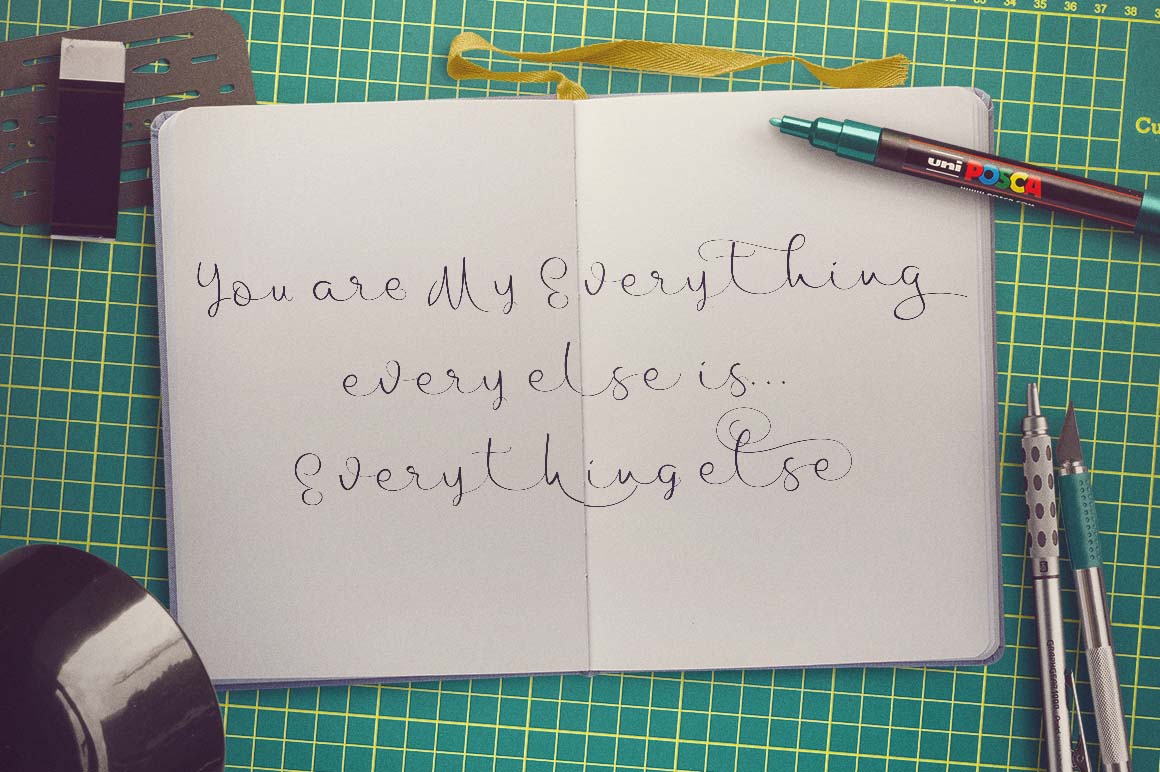 33 34 35 36 37 38
Cu
uni POSCA
You are My Everything
every else is...
Everything else